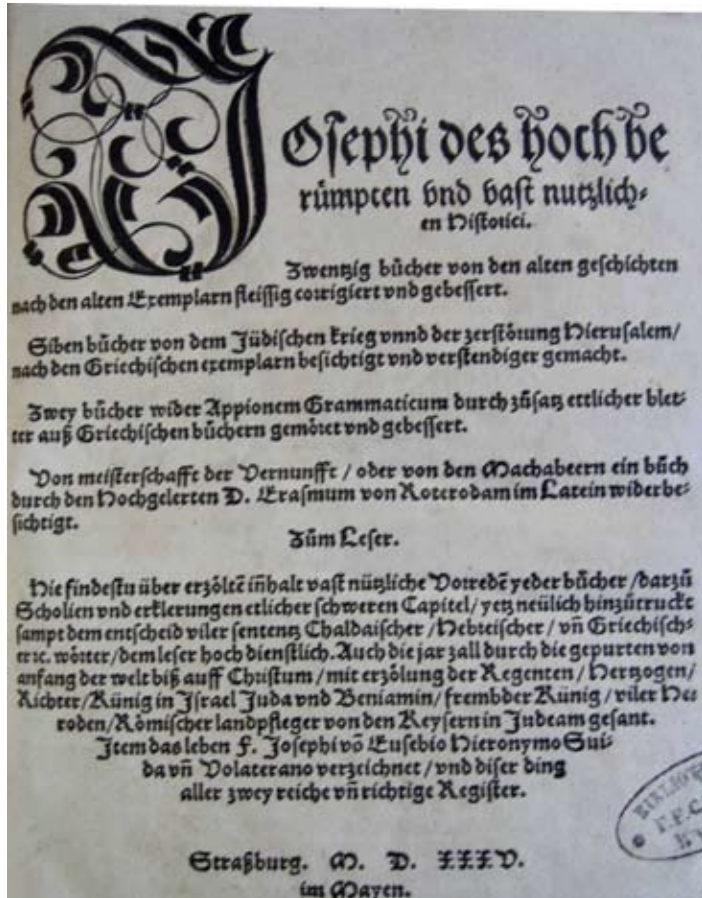 Josephi des hoch be
rümpten vnd vast nutzlich⸗
en Historici.
Zwentzig bücher von den alten geschichten
nach den alten Exemplarn fleissig corrigiert vnd gebessert.
Siben bücher von dem Jüdischen krieg vnnd der zerstörung Hierusalem/
nach den Griechischen exemplarn besichtigt vnd verstendiger gemacht.
Zwey bücher wider Appionem Grammaticum durch zůsatz ettlicher blet⸗
ter auß Griechischen büchern gemötet vnd gebessert.
Von meisterschafft der Vernunfft / oder von den Machabeern ein bůch
durch den Hochgelerten D. Erasmum von Roterodam im Latein widerbe⸗
sichtigt.
Zům Leser.
Hie findestu über erzölte inhalt vast nützliche Vorredē yeder bücher /darzů
Scholien vnd erklerungen etlicher schweren Capitel/ yetz neülich hinzůtruckt
sampt dem entscheid viler sententz Chaldaischer /Hebreischer / vñ Griechisch⸗
er ꝛc. wörter/dem leser hoch dienstlich. Auch die jar zall durch die gepurten von
anfang der welt biß auff Christum / mit erzölung der Regenten / Hertzogen/
Richter/Künig in Jsrael Juda vnd Beniamin/ frembder Künig / viler He⸗
roden/Römischer landpfleger von den Keysern in Judeam gesant.
Jtem das leben F. Josephi vō Eusebio Hieronymo Sui⸗
da vñ Volaterano verzeichnet / vnd diser ding
aller zwey reiche vñ richtige Register.
Straßburg. M. D. XXXV.
im Mayen.